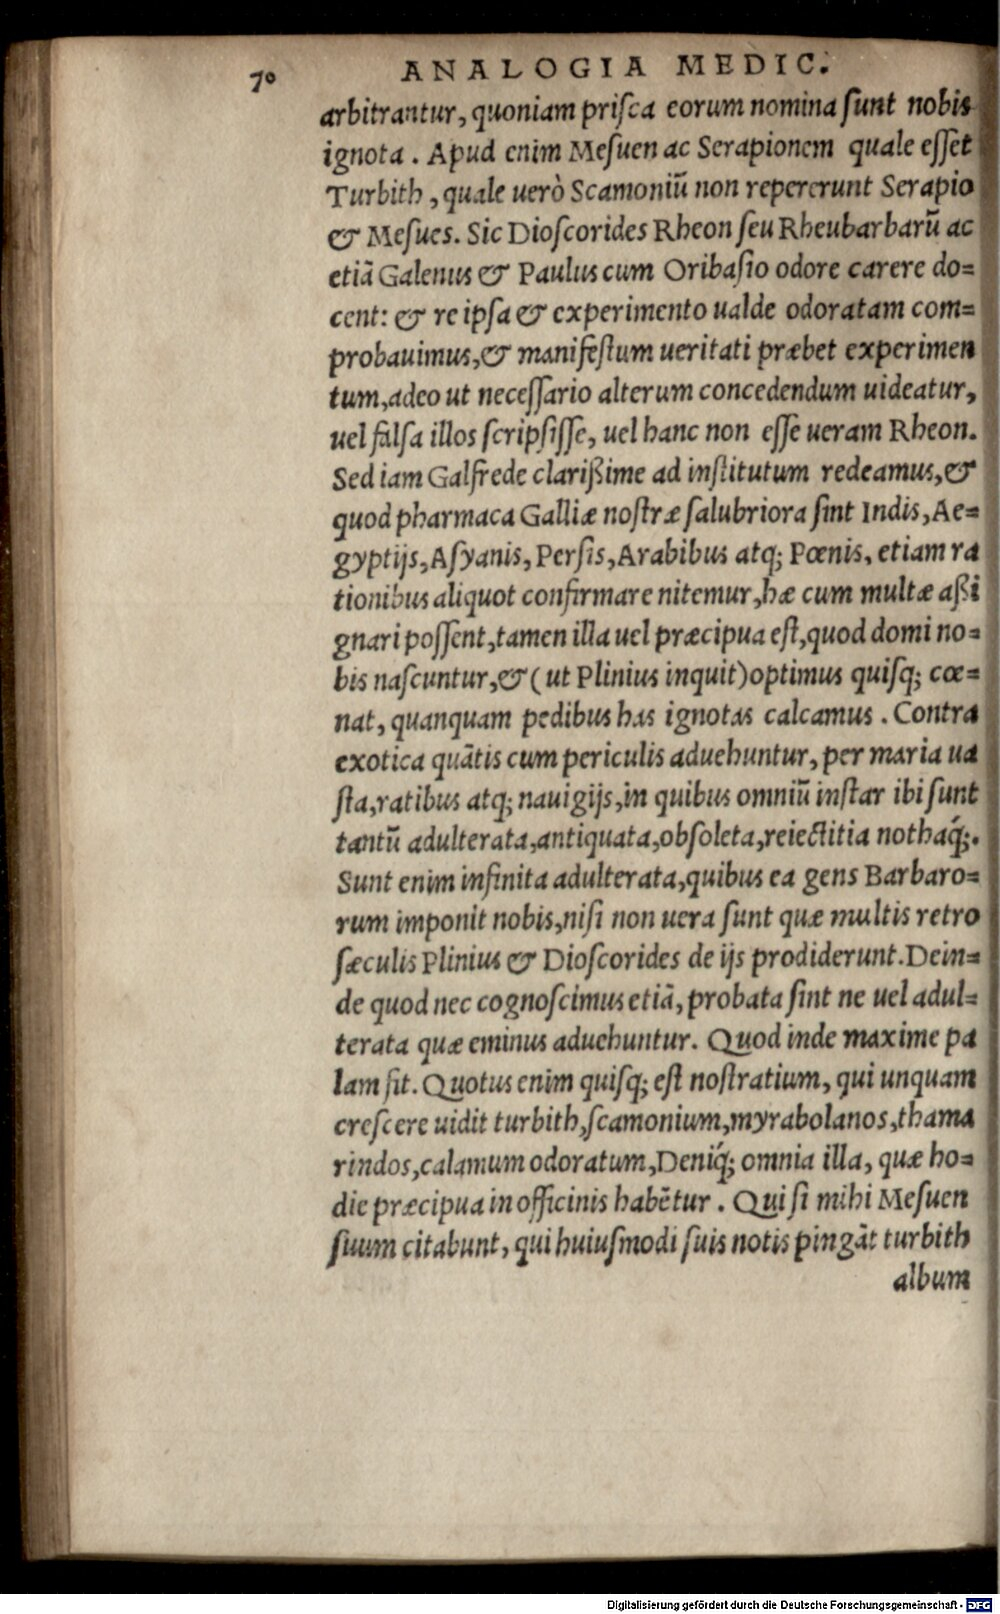 70 ANALOGIA MEDIC.
arbitrantur, quoniam priſca eorum nomina ſunt nobis
ignota. Apud enim Meſuen ac Serapionem quale eſſet
Turbith, quale uerò Scamoniũ non repererunt Serapio
& Meſues. Sic Dioſcorides Rheon ſeu Rheubarbarũ ac
etiã Galenus & Paulus cum Oribaſio odore carere do=
cent: & re ipſa & experimento ualde odoratam com=
probauimus, & manifeſtum ueritati præbet experimen
tum, adeo ut neceſſario alterum concedendum uideatur,
uel falſa illos ſcripſiſſe, uel hanc non eſſe ueram Rheon.
Sed iam Galfrede clarißime ad inſtitutum redeamus, &
quod pharmaca Galliæ noſtræ ſalubriora ſint Indis, Ae=
gyptijs, Aſyanis, Perſis, Arabibus atq; Pœnis, etiam ra
tionibus aliquot confirmare nitemur, hæ cum multæ aßi
gnari poſſent, tamen illa uel præcipua eſt, quod domi no=
bis naſcuntur, & (ut Plinius inquit) optimus quiſq; cœ=
nat, quanquam pedibus has ignotas calcamus. Contra
exotica quãtis cum periculis aduehuntur, per maria ua
ſta, ratibus atq; nauigijs, in quibus omniũ inſtar ibi ſunt
tantũ adulterata, antiquata, obſoleta, reiectitia nothaq́;.
Sunt enim infinita adulterata, quibus ea gens Barbaro=
rum imponit nobis, niſi non uera ſunt quæ multis retro
ſæculis Plinius & Dioſcorides de ijs prodiderunt. Dein=
de quod nec cognoſcimus etiã, probata ſint ne uel adul=
terata quæ eminus aduehuntur. Quod inde maxime pa
lam ſit. Quotus enim quiſq; eſt noſtratium, qui unquam
creſcere uidit turbith, ſcamonium, myrabolanos, thama
rindos, calamum odoratum, Deniq́; omnia illa, quæ ho=
die præcipua in officinis habẽtur. Qui ſi mihi Meſuen
ſuum citabunt, qui huiuſmodi ſuis notis pingãt turbith
album
Digitalisierung gefördert durch die Deutsche Forschungsgemeinschaft - DFG